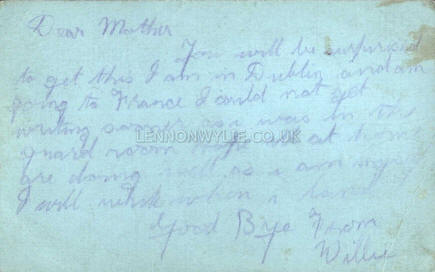 Dear Mother
You will be surprised
to get this I am in Dublin and am
going to France I could not get
writing sooner as i was in the
guard room hope all at home
are doing well as i am myself
I will write when i land
Good Bye From
Willie
LENNONWYLIE.CO.UK